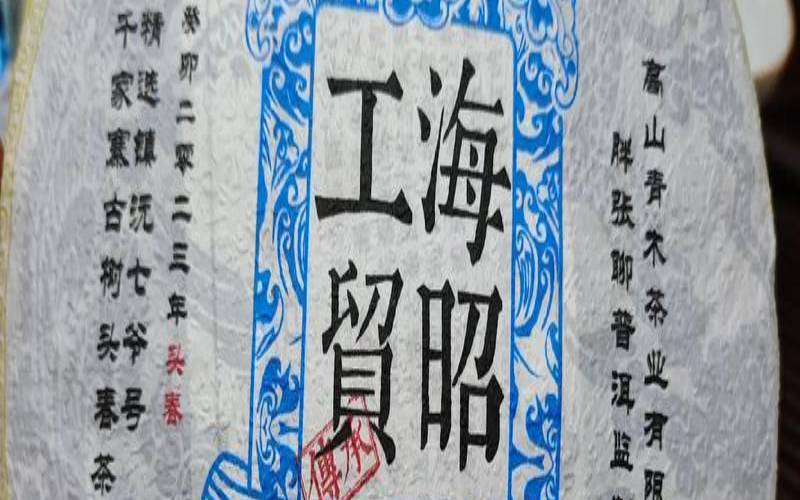 高山青木茶业有限
胖张聊普洱监
海昭
工貿
傳承
癸卯二零二三年头春
精选镇沅七爷号
千家寨古树头春茶